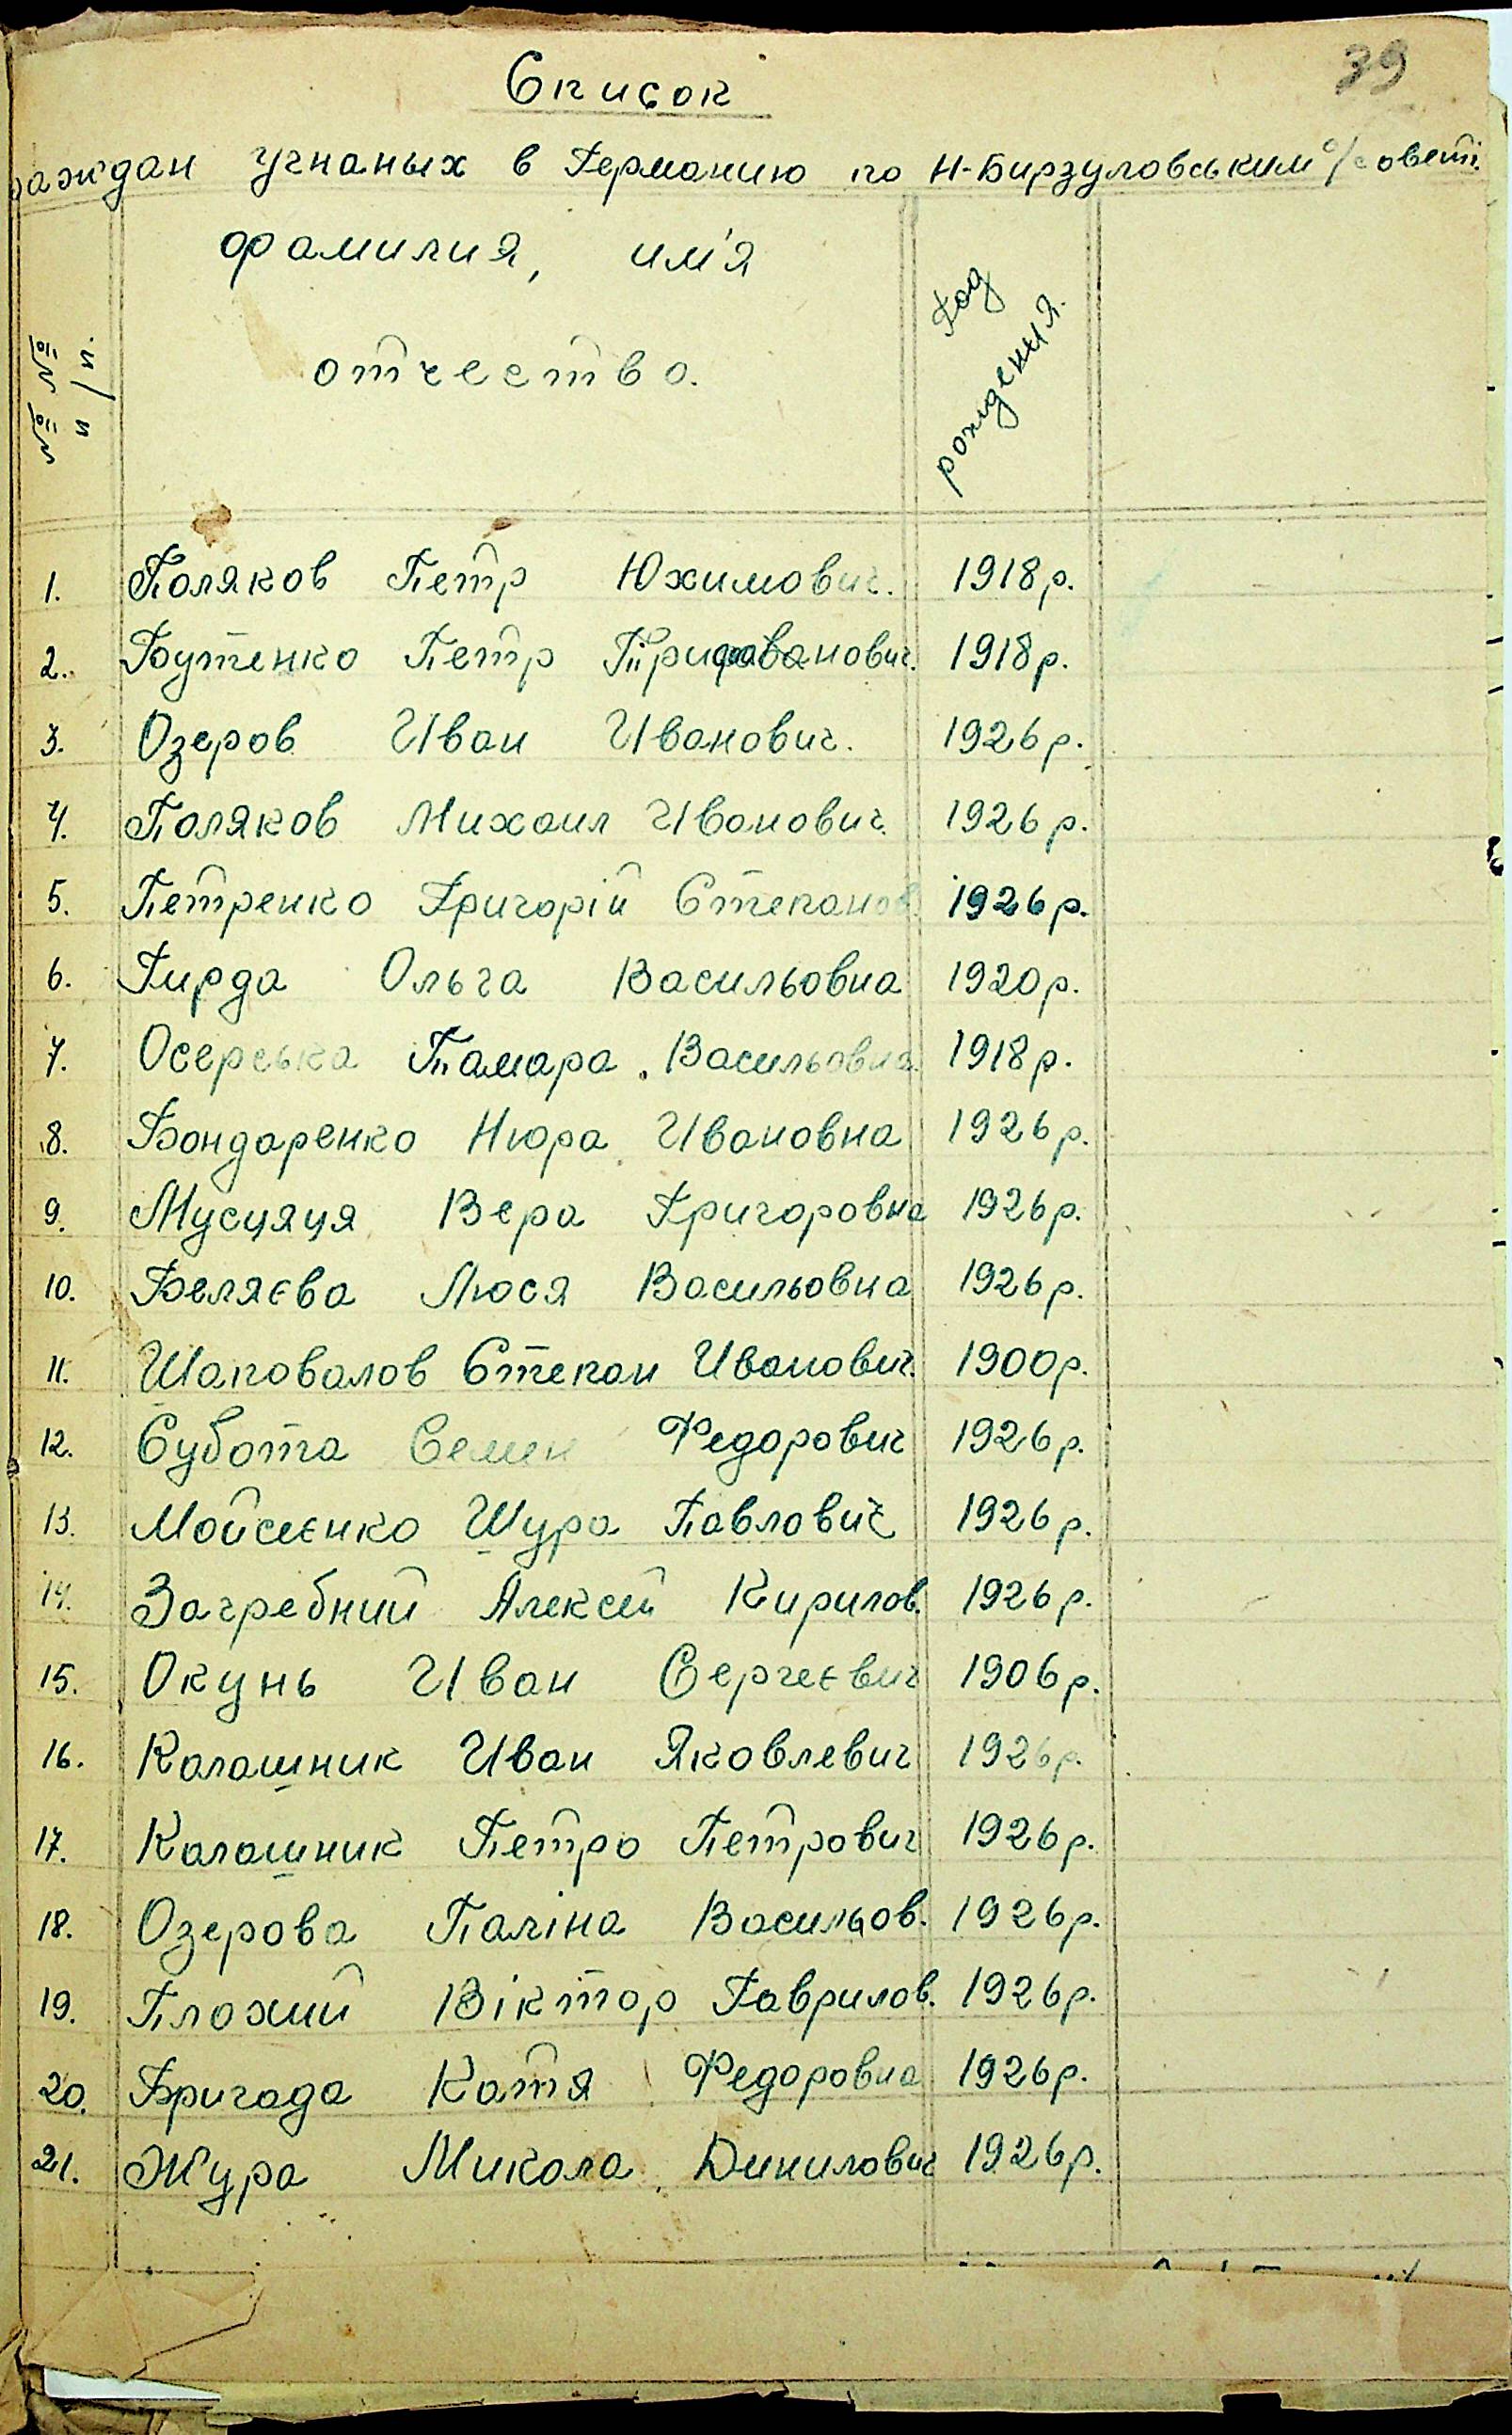 39
Список
раждан угнаных в Германию по Н-Бирзуловським с/совету.
№№ п/п. фамилия, им'я отчество. Год рождения.
1. Поляков Петр Юхимович. 1918р.
2. Бутенко Петр Трифованович. 1918р.
3. Озеров Иван Иванович. 1926р.
4. Поляков Михаил Иванович. 1926р.
5. Петренко Григорій Степанов. 1926р.
6. Гирда Ольга Васильовна 1920р.
7. Осерська Тамара Васильовна 1918р.
8. Бондаренко Нюра Ивановна 1926р.
9. Мусияця Вера Григоровна 1926р.
10. Беляєва Люся Васильовна 1926р.
11. Шаповалов Степан Иванович. 1900р.
12. Субота Семен Федорович 1926р.
13. Мойсєєнко Шура Павлович 1926р.
14. Загребний Алексей Кирилов. 1926р.
15. Окунь Иван Сергеєвич 1906р.
16. Калашник Иван Яковлевич 1926р.
17. Калашник Петро Петрович 1926р.
18. Озерова Галіна Васильов. 1926р.
19. Плохий Віктор Гаврилов. 1926р.
20. Бригада Катя Федоровна 1926р.
21. Жура Микола Динилович 1926р.